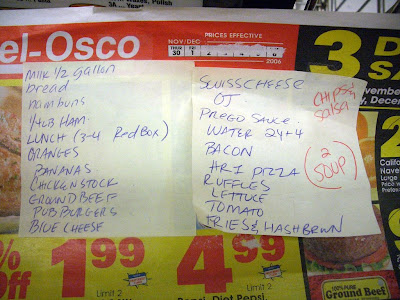 el-Osco
NOV/DEC
PRICES EFFECTIVE
THUR
30
1
2
3
4
5
6
2006
3 D
SA
Milk 1/2 gallon
bread
ham buns
1/4LB HAM
LUNCH (3-4 Red Box)
ORANGES
BANANAS
CHICKEN STOCK
GROUND BEEF
PUB BURGERS
BLUE CHEESE
SWISS CHEESE
OJ
PREGO SAUCE
WATER 24+4
BACON
HRI PIZZA
RUFFLES
LETTUCE
TOMATO
FRIES & HASHBROWN
CHIPS &
Salsa
2
SOUP
%
Off
1.99
Limit 2
4.99
Limit 2
Pepsi, Diet Pepsi,
2
Navel
Large
100% PURE
Ground Beef